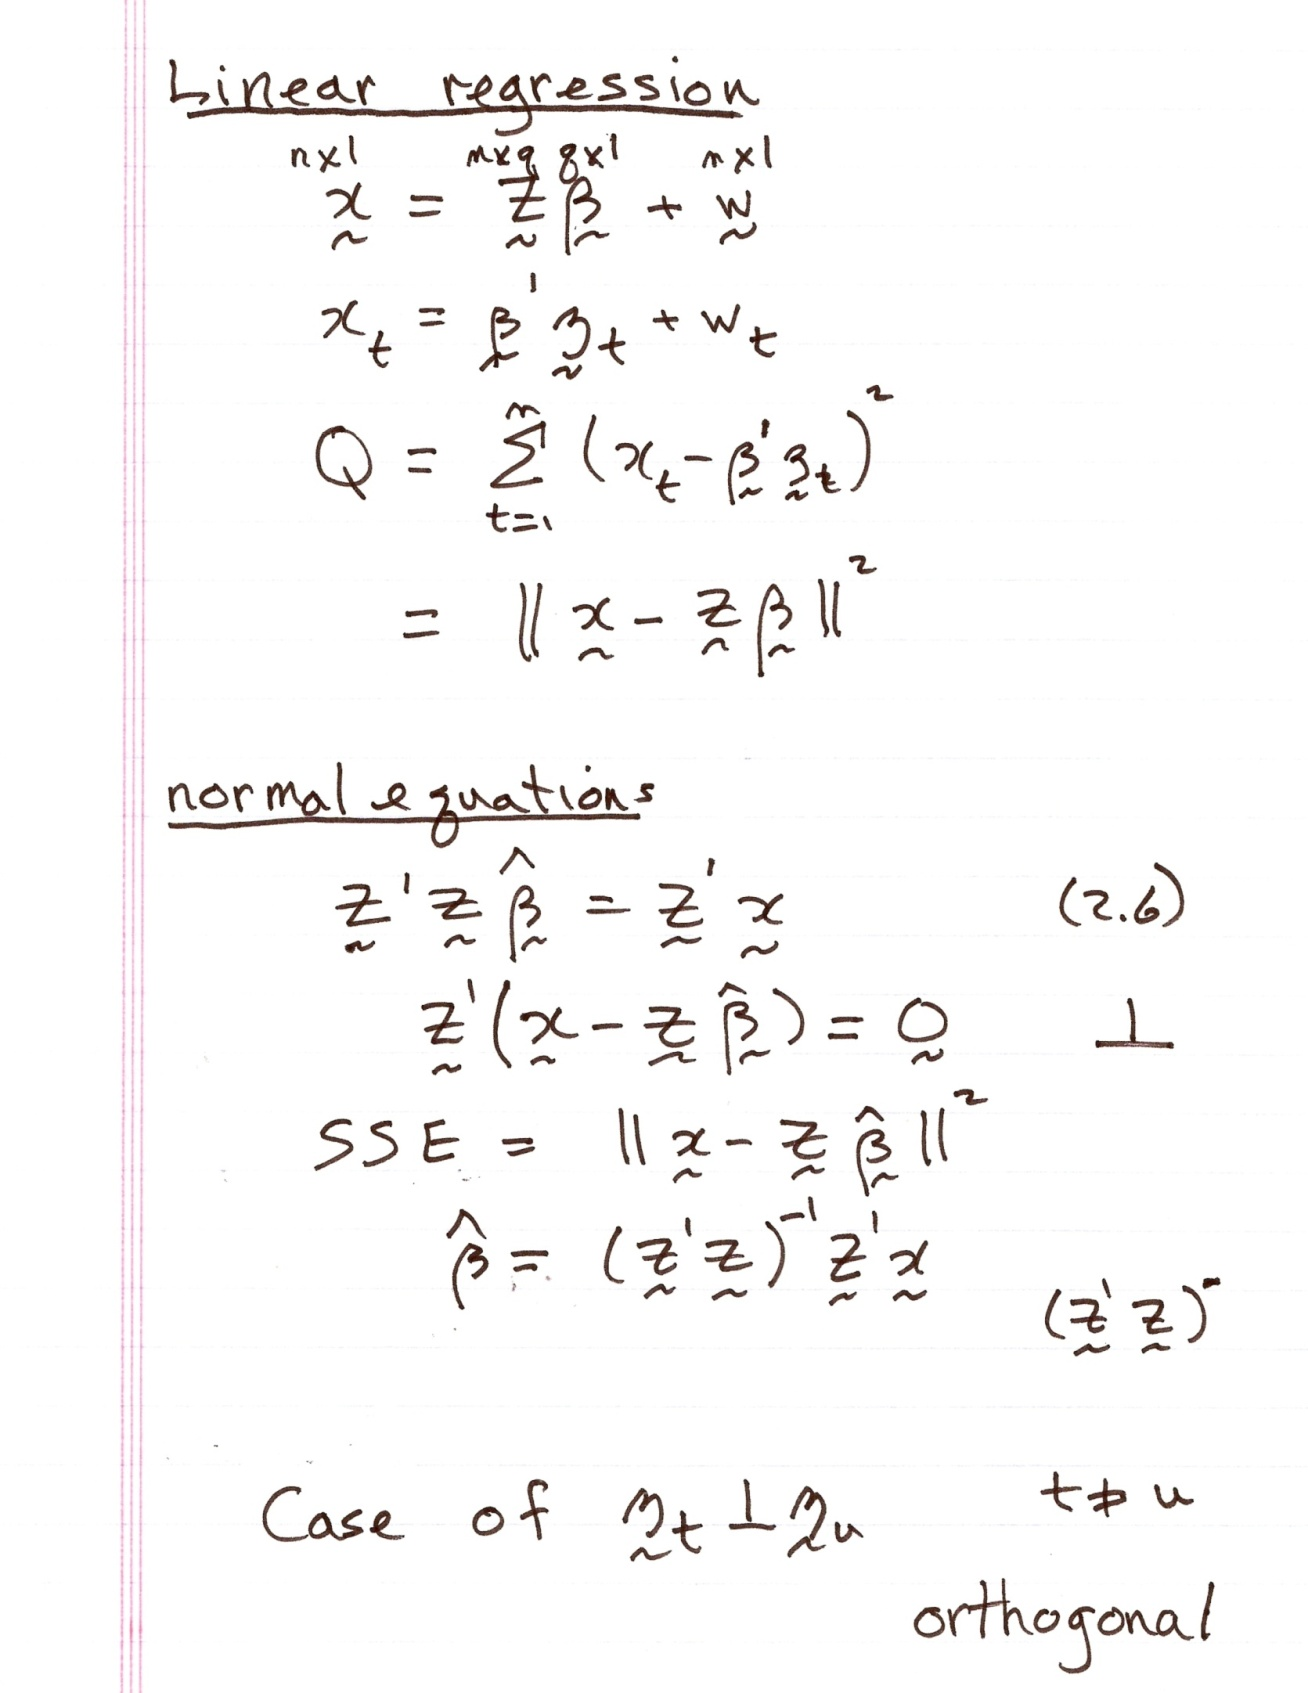 Linear regression
n×1 n×q q×1 n×1
x = Z β + w
x_t = β' z_t + w_t
Q = Σ_{t=1}^{n} (x_t − β' z_t)²
= ‖ x − Z β ‖²
normal equations
Z' Z β̂ = Z' x (2.6)
Z' (x − Z β̂) = 0 ⊥
SSE = ‖ x − Z β̂ ‖²
β̂ = (Z' Z)⁻¹ Z' x
(Z' Z)⁻
Case of z_t ⊥ z_u t ≠ u
orthogonal